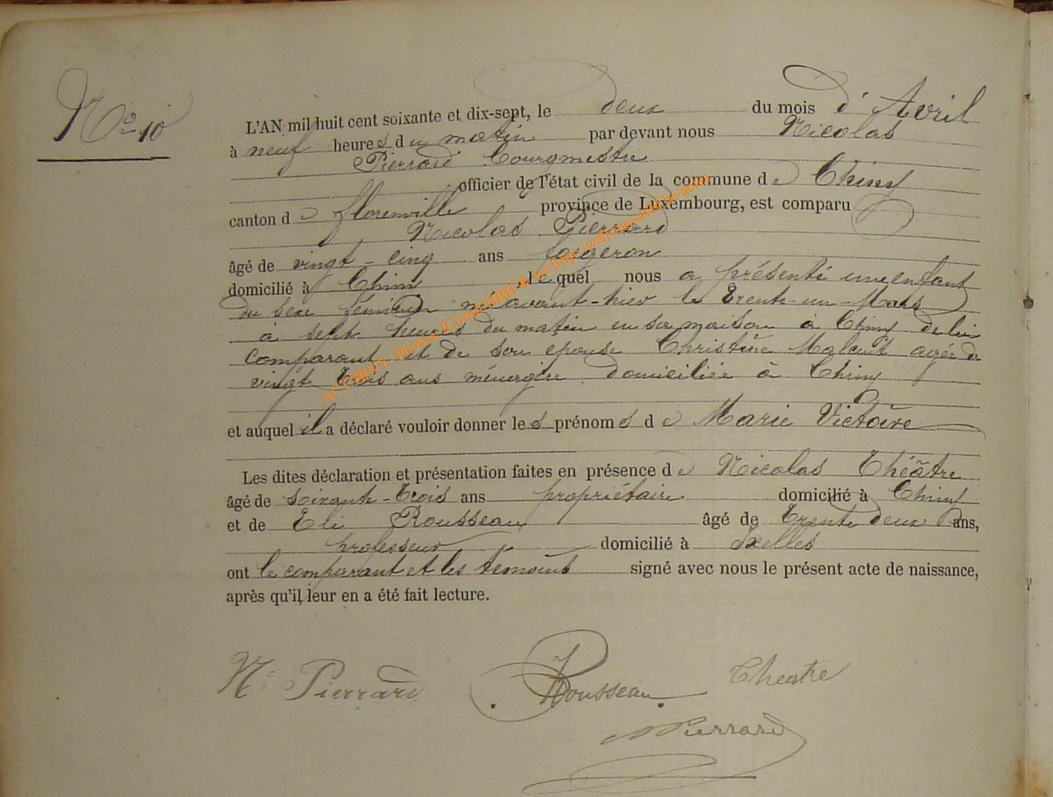 No 10
L'AN mil huit cent soixante et dix-sept, le deux du mois d'Avril
à neuf heures du matin par devant nous Nicolas
Pierrard Bourgmestre
officier de l'état civil de la commune de Chiny
canton de florenville province de Luxembourg, est comparu
Nicolas Pierrard
âgé de vingt-cinq ans forgeron
domicilié à Chiny lequel nous a présenté un enfant
du sexe féminin né avant-hier le Trente-un-Mars
à sept heures du matin en sa maison à Chiny de lui
comparant et de son épouse Christine agée de
vingt trois ans ménagère domiciliée à Chiny
et auquel il a déclaré vouloir donner les prénoms de Marie Victoire
Les dites déclaration et présentation faites en présence de Nicolas Théâtre
âgé de soixante-Trois ans propriétaire domicilié à Chiny
et de Eli Rousseau âgé de Trente deux ans,
professeur domicilié à Ixelles
ont le comparant et les témoins signé avec nous le présent acte de naissance,
après qu'il leur en a été fait lecture.
N. Pierrard Rousseau Theatre
NPierrard